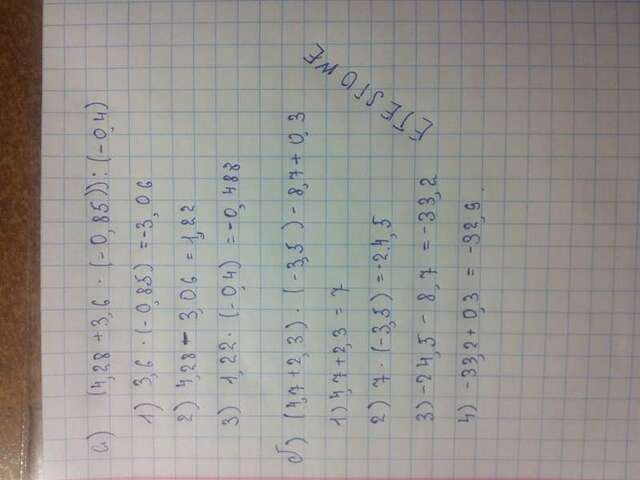 а) (4,28 + 3,6 · (-0,85)) : (-0,4)
1) 3,6 · (-0,85) = -3,06
2) 4,28 - 3,06 = 1,22
3) 1,22 · (-0,4) = -0,488
б) (4,7 + 2,3) · (-3,5) - 8,7 + 0,3
1) 4,7 + 2,3 = 7
2) 7 · (-3,5) = -24,5
3) -24,5 - 8,7 = -33,2
4) -33,2 + 0,3 = -32,9.